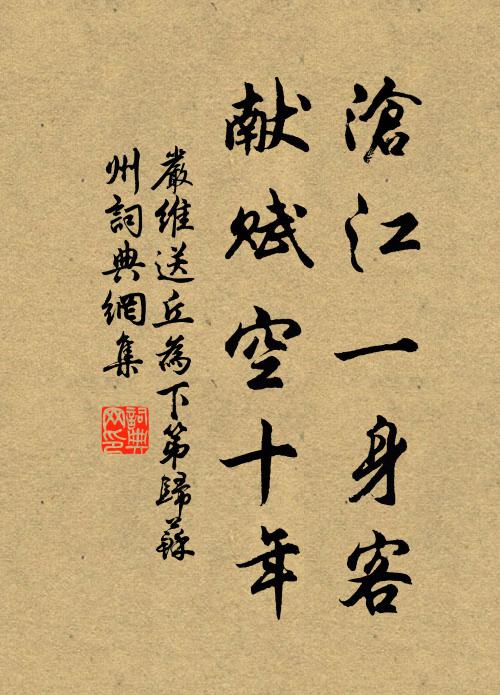 滄江一身客
献賦空十年
嚴維送丘為下第歸蘇
州詞典網集
詞典
网印